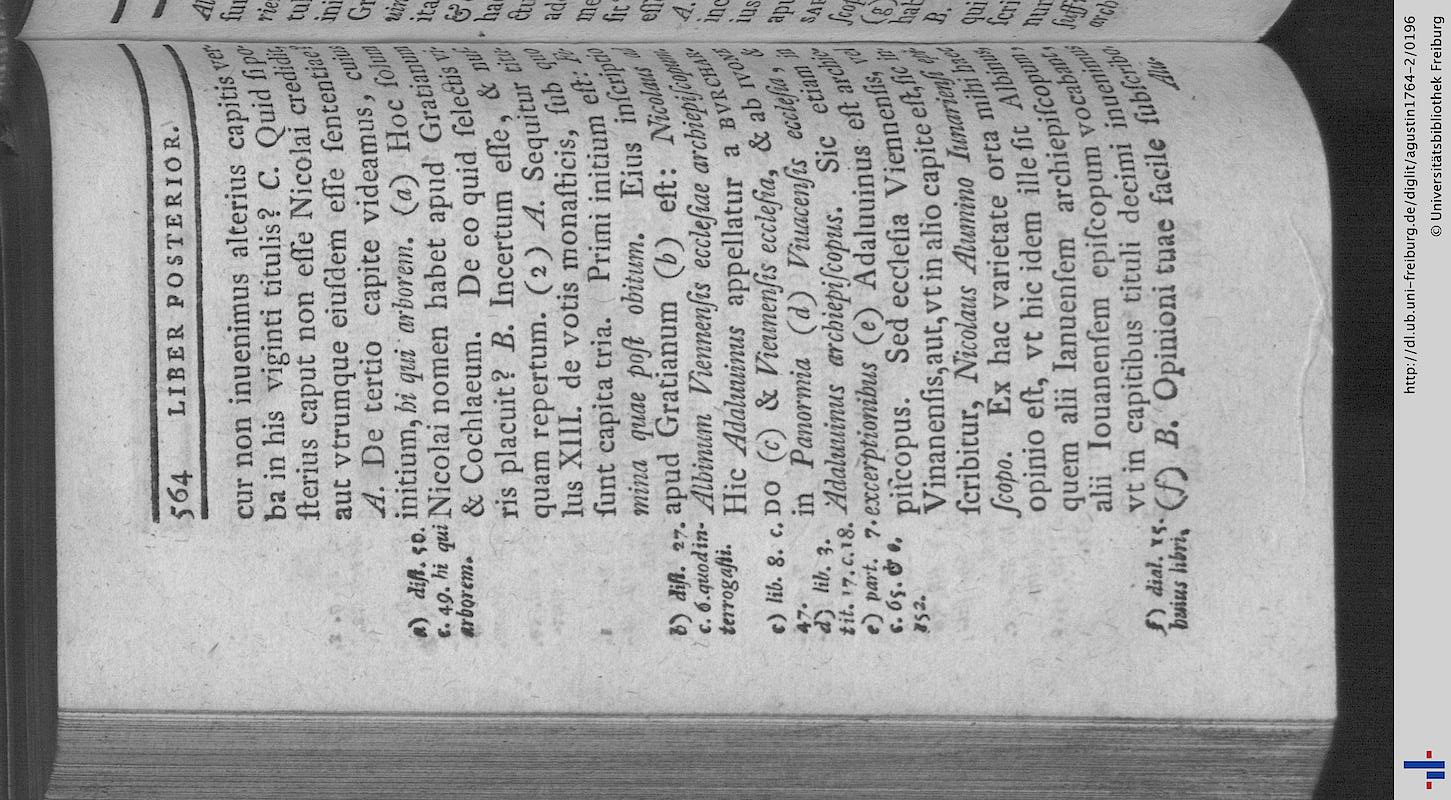 564 LIBER POSTERIOR.
cur non inuenimus alterius capitis ver
ba in his viginti titulis? C. Quid ſi po-
ſterius caput non eſſe Nicolai credidi,
aut vtrumque eiuſdem eſſe ſententiae?
A. De tertio capite videamus, cuius
initium, hi qui arborem. (a) Hoc ſolum
Nicolai nomen habet apud Gratianum
& Cochlaeum. De eo quid ſelectis vi-
ris placuit? B. Incertum eſſe, & nus-
quam repertum. (2) A. Sequitur titu-
lus XIII. de votis monaſticis, ſub quo
ſunt capita tria. Primi initium eſt: Fe-
mina quae poſt obitum. Eius inſcriptio
apud Gratianum (b) eſt: Nicolaus ad
Albinum Viennenſis eccleſiae archiepiſcopum.
Hic Adaluuinus appellatur a BVRCHAR-
DO (c) & Vieunenſis eccleſia, & ab IVONE
in Panormia (d) Viuacenſis eccleſia, &
Adaluuinus archiepiſcopus. Sic etiam in
excerptionibus (e) Adaluuinus eſt archie-
piſcopus. Sed eccleſia Viennenſis, vel
Vinanenſis, aut, vt in alio capite eſt, ſic in-
ſcribitur, Nicolaus Alumino Iunarienſi epi-
ſcopo. Ex hac varietate orta mihi haec
opinio eſt, vt hic idem ille ſit Albinus,
quem alii Ianuenſem archiepiſcopum,
alii Iouanenſem epiſcopum vocabant,
vt in capitibus tituli decimi inuenimus
(f) B. Opinioni tuae facile ſubſcribo.
a) diſt. 50.
c. 49. hi qui
arborem.
b) diſt. 27.
c. 6. quod in-
terrogaſti.
c) lib. 8. c.
47.
d) lib. 3.
tit. 17. c. 18.
e) part. 7.
c. 65. & c.
152.
f) dial. 15.
huius libri,
http://dl.ub.uni-freiburg.de/diglit/agustin1764-2/0196
© Universitätsbibliothek Freiburg